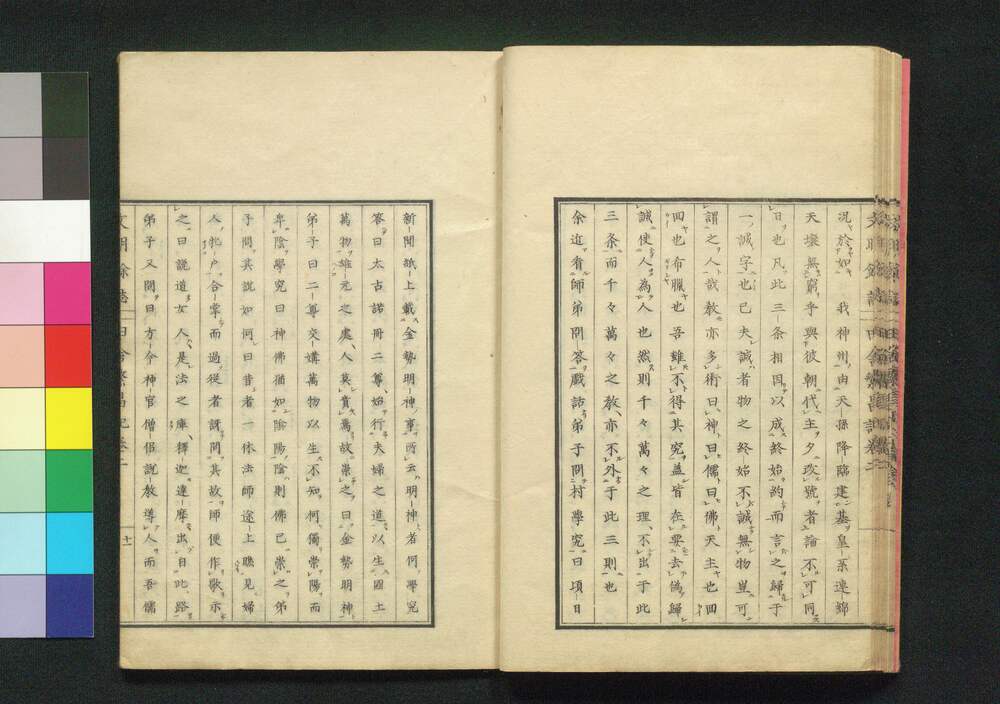 況於如我神州由天孫降臨建基皇系連綿
天壤無窮乎與彼朝代主夕改號者論不可同
日也凡此三条相因以成終始約而言之歸于
一誠字也已夫誠者物之終始不誠無物豈可
謂之人哉教亦多術曰神曰儒曰佛天主也回
回也希臘也吾雖不得其究蓋皆在要去偽歸
誠使人為人也然則千々萬々之理不出于此
三条而千々萬々之教亦不外于此三則也
余近看師弟問答戲話弟子問村學究曰頃日
新聞紙上載金勢明神事所云明神者何學究
答曰太古諾冊二尊始行夫婦之道以生國土
萬物雄元之處人莫貴焉故崇之曰金勢明神
弟子曰二尊交媾萬物以生不知何獨崇陽而
卑陰學究曰神佛猶如陰陽陰則佛已崇之弟
子問其説如何曰昔者一休法師途上瞻見婦
人牝戸合掌而過從者訝問其故師便作歌示
之曰説道女人是法之庫釋迦達摩出自此路
弟子又問曰方今神官僧侶説教導人而吾儒
田舎繁昌記卷二
十一